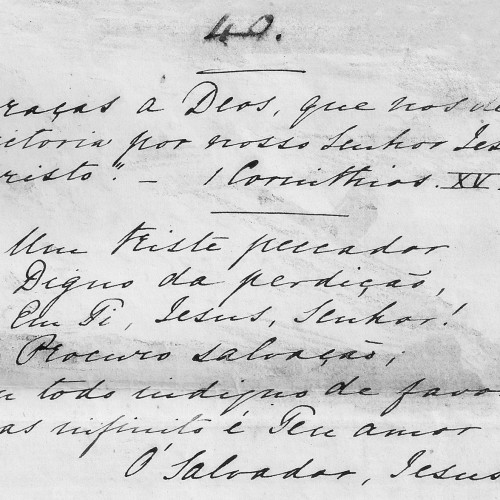 40.
raças a Deos, que nos
itoria por nosso Senhor Jes
risto". — 1 Corinthios. XV
Um triste peccador
Digno da perdição,
Em Ti, Jesus, Senhor!
Procuro salvação;
u todo indigno de favo
as infinito é Teu amor
Ó Salvador, Jesus